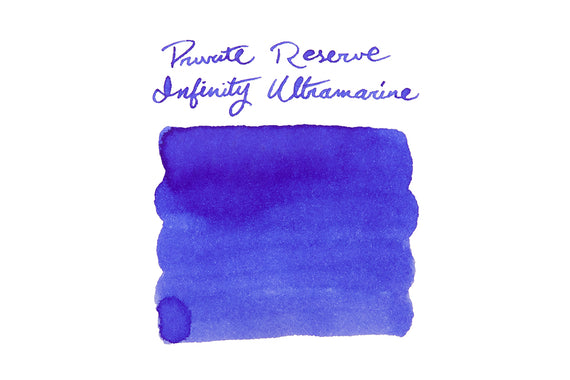 Private Reserve
Infinity Ultramarine